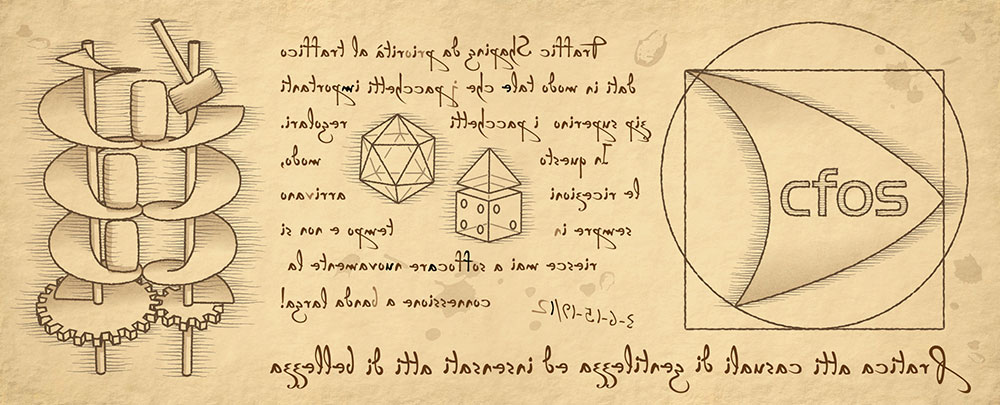 Traffic Shaping da priorità al traffico
dati in modo tale che i pacchetti importanti
zip superino i pacchetti regolari.
In questo modo,
le ricezioni arrivano
sempre in tempo e non si
riesce mai a soffocare nuovamente la
connessione a banda larga!
3-6-15-19/12
cfos
Pratica atti casuali di gentilezza ed insensati atti di bellezza